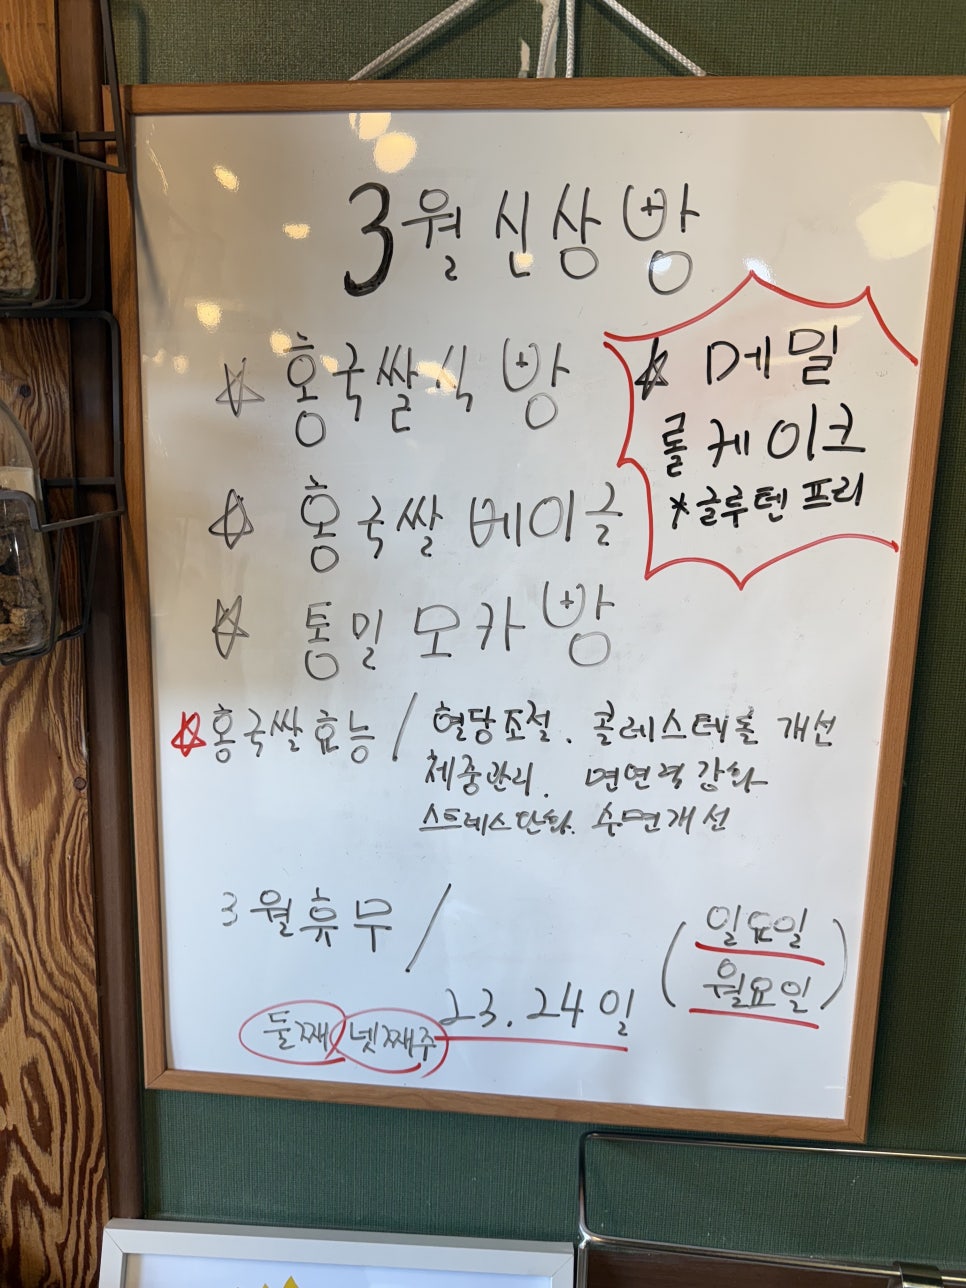 3월 신상 빵
☆ 홍국쌀식빵
☆ 메밀
롤케이크
*글루텐프리
☆ 홍국쌀 베이글
☆ 통밀 모카빵
☆홍국쌀효능 / 혈당조절. 콜레스테롤 개선
체중관리. 면연력강화
스트레스단화. 수면개선
3월휴무 /
23. 24일
(일요일
월요일)
둘째 넷째주